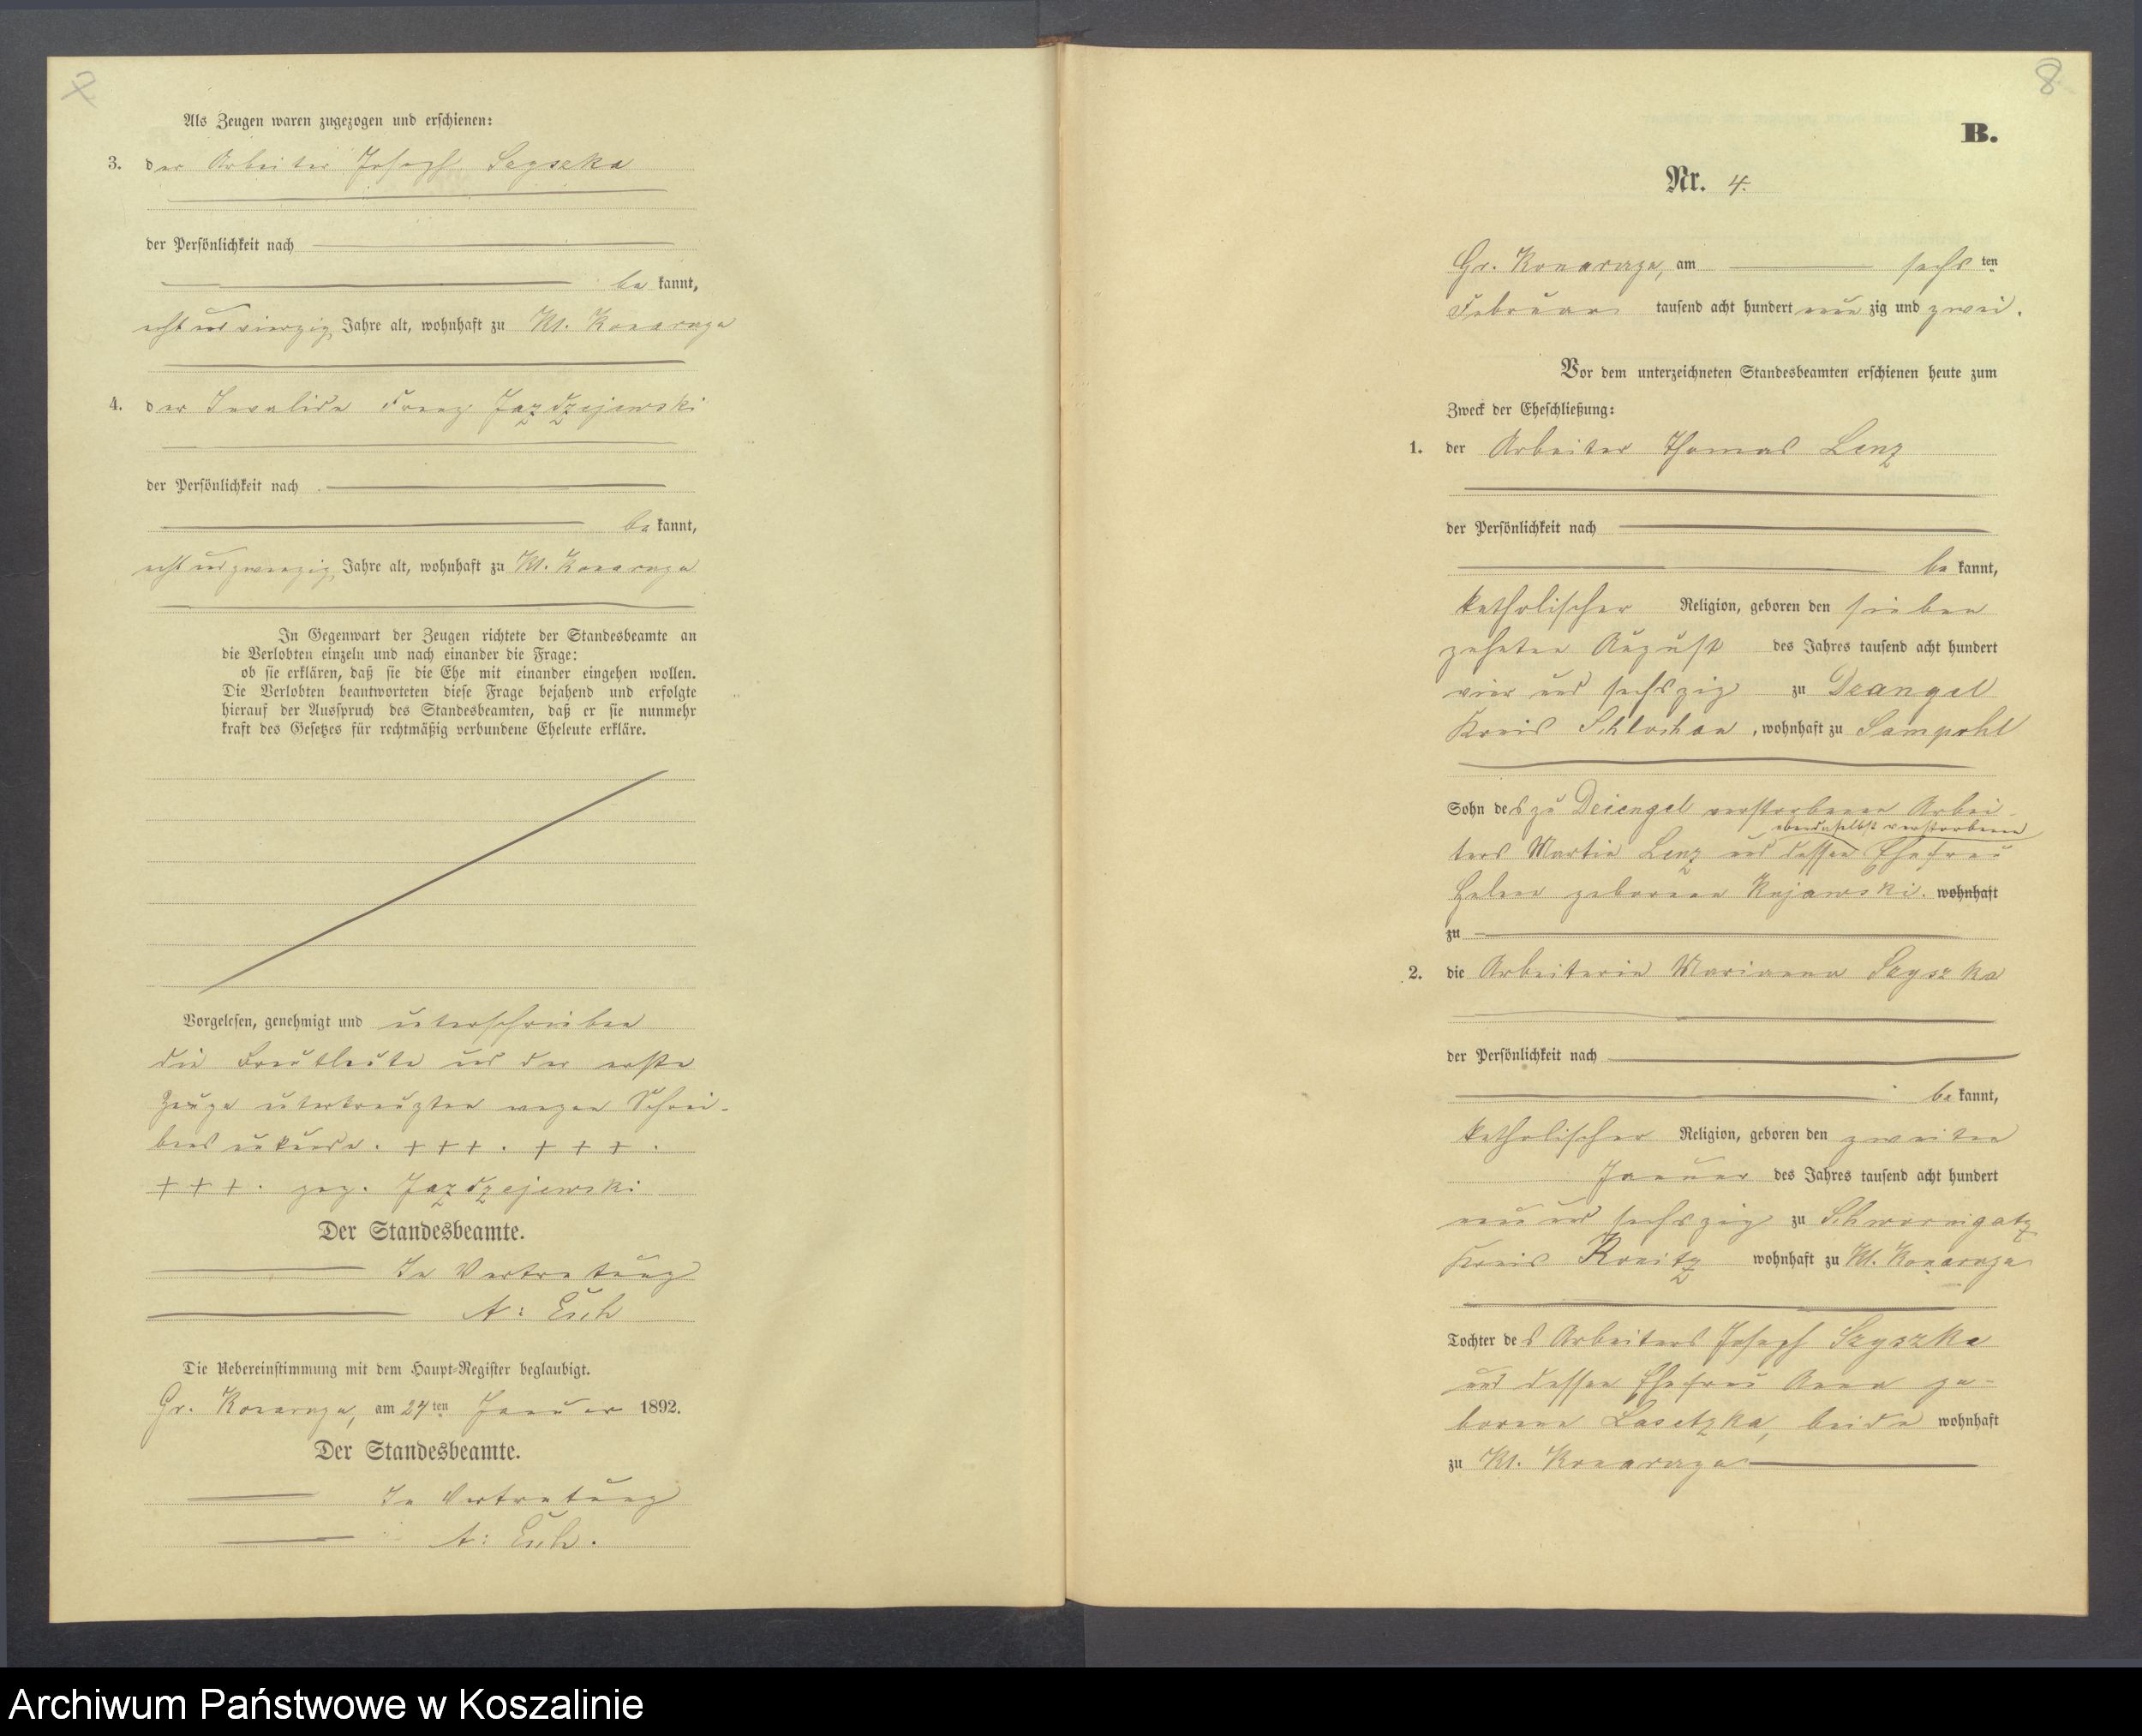 7
Als Zeugen waren zugezogen und erschienen:
3. der Arbeiter Joseph Szyszka
der Persönlichkeit nach
be kannt,
acht und vierzig Jahre alt, wohnhaft zu Kl. Konarzyn
4. der Invalide Franz Jazdzejewski
der Persönlichkeit nach
be kannt,
acht und zwanzig Jahre alt, wohnhaft zu Kl. Konarzyn
In Gegenwart der Zeugen richtete der Standesbeamte an
die Verlobten einzeln und nach einander die Frage:
ob sie erklären, daß sie die Ehe mit einander eingehen wollen.
Die Verlobten beantworteten diese Frage bejahend und erfolgte
hierauf der Ausspruch des Standesbeamten, daß er sie nunmehr
kraft des Gesetzes für rechtmäßig verbundene Eheleute erkläre.
Vorgelesen, genehmigt und unterschrieben
die Brautleute und der erste
Zeuge unterkreuzten wegen Schrei-
bens unkunde. +++. +++.
+++. gez. Jazdzejewski
Der Standesbeamte.
In Vertretung
A: Esch
Die Uebereinstimmung mit dem Haupt-Register beglaubigt.
Gr. Konarzyn, am 24 ten Januar 1892.
Der Standesbeamte.
In Vertretung
A: Esch.
8
B.
Nr. 4.
Gr. Konarzyn, am sechs ten
Februar tausend acht hundert neun zig und zwei.
Vor dem unterzeichneten Standesbeamten erschienen heute zum
Zweck der Eheschließung:
1. der Arbeiter Thomas Lenz
der Persönlichkeit nach
be kannt,
katholischer Religion, geboren den sieben
zehnten August des Jahres tausend acht hundert
vier und sechszig zu
Kreis Schlochau, wohnhaft zu Sampohl
Sohn des zu verstorbenen Arbei-
ebendaselbst verstorbenen
ters Martin Lenz und dessen Ehefrau
Helene geborene Kujawski. wohnhaft
zu
2. die Arbeiterin Marianna Szyszka
der Persönlichkeit nach
be kannt,
katholischer Religion, geboren den zweiten
Januar des Jahres tausend acht hundert
neun und sechszig zu Schwornigatz
Kreis Konitz wohnhaft zu Kl. Konarzyn
Tochter des Arbeiters Joseph Szyszka
und dessen Ehefrau Anna ge-
borene Lasetzka, beide wohnhaft
zu Kl. Konarzyn
Archiwum Państwowe w Koszalinie